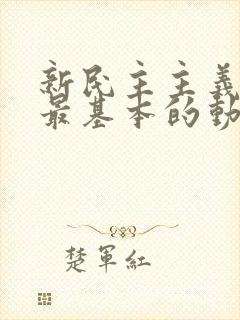 新民主主義
最基本的動
楚軍紅